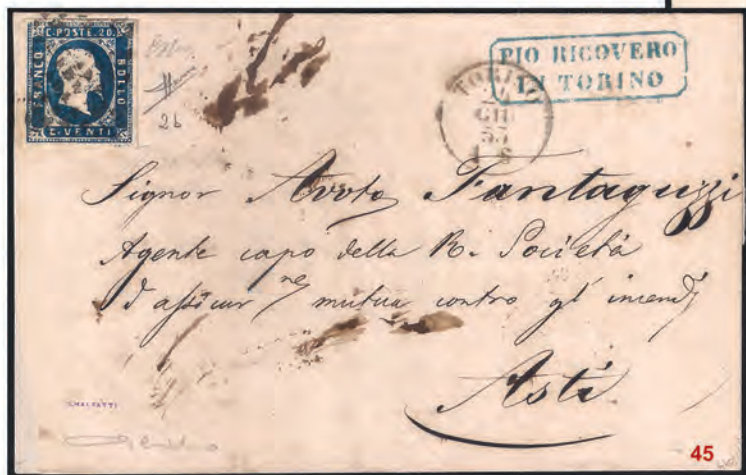 C. POSTE. 20.
FRANCO
BOLLO
C. VENTI
2b
PIO RICOVERO
IN TORINO
TORINO
GIU
53
Signor Avvto Fantaguzzi
Agente capo della R. Società
d'assicur ne mutua contro gl' incendj
Asti
45